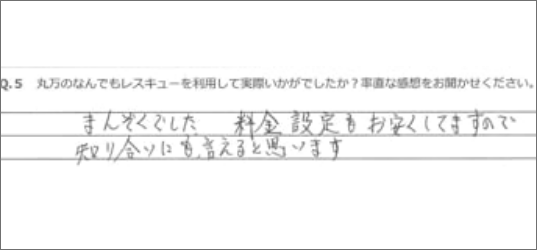 Q.5 丸万のなんでもレスキューを利用して実際いかがでしたか?率直な感想をお聞かせください。
まんぞくでした 料金設定もお安くしてますので
知り合いにも、言えると思います